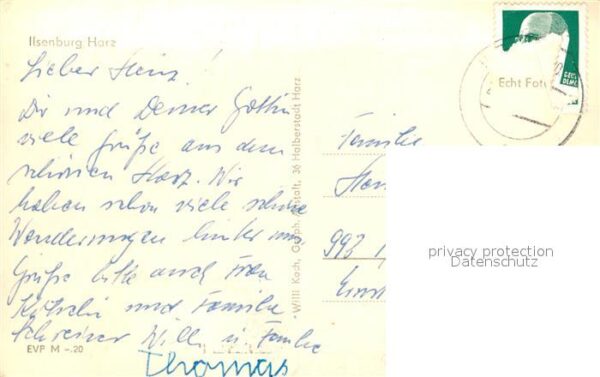 Ilsenburg Harz
Lieber Heinz!
Dir und Deiner Gattin
viele Grüße aus dem
schönen Harz. Wir
haben schon viele schöne
Wanderungen hinter uns.
Grüße bitte auch Frau
und Familie
Schreiner Willi u. Familie
Thomas
EVP M –.20
Willi Koch, Graph. Anstalt, 36 Halberstadt Harz
Echt Foto
Familie
993
privacy protection
Datenschutz